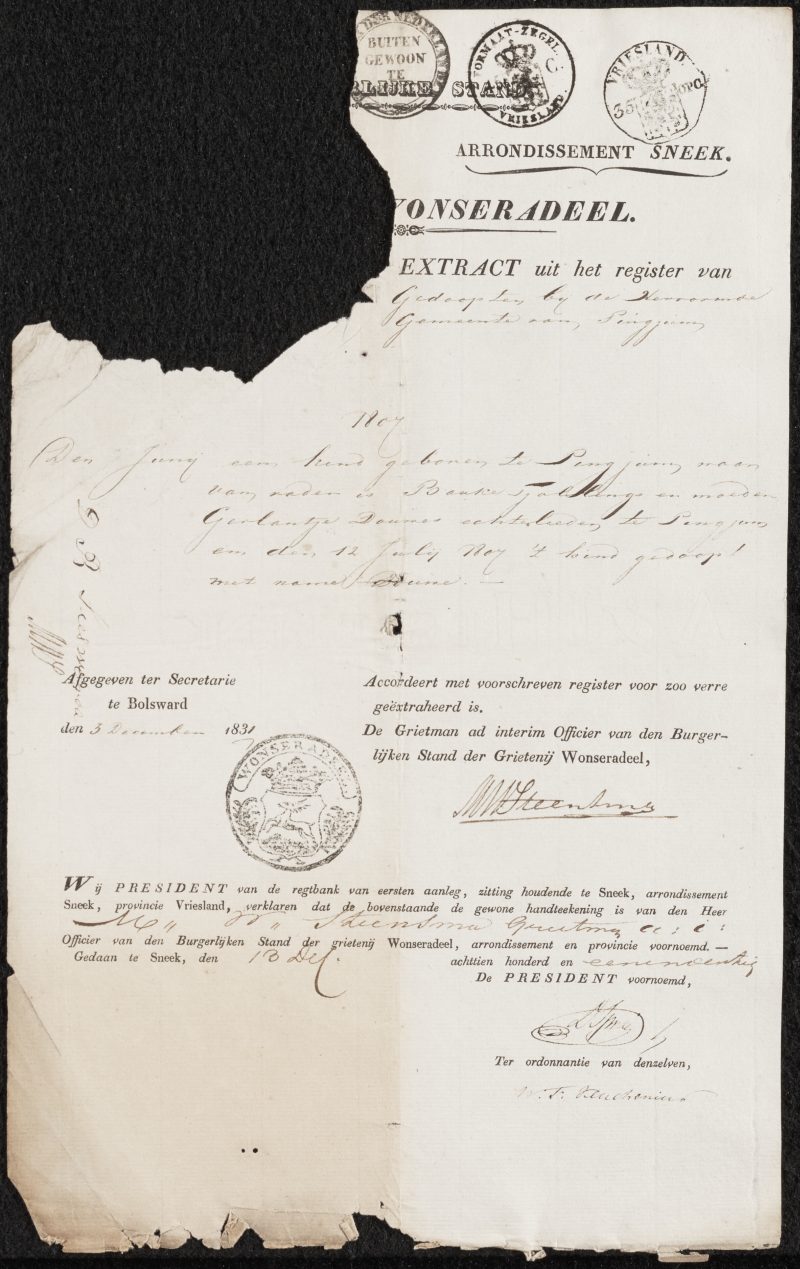 DER NEDERLAND
BUITEN
GEWOON
TE
FORMAAT-ZEGEL.
VRIESLAND.
VRIESLAND
35
OPC.
RLIJKE STAND
ARRONDISSEMENT SNEEK.
WONSERADEEL.
EXTRACT uit het register van
Gedoopten by de Hervormde
Gemeente van Pingjum
1807
Den Junij een kind geboren te Pingjum waar
van vader is Bauke Tjallings en moeder
Gerlantje Douwes echtelieden te Pingjum
en den 12 Julij 1807 't kind gedoopt
met name Douwe. —
Afgegeven ter Secretarie
te Bolsward
den 3 December 1831
Accordeert met voorschreven register voor zoo verre
geëxtraheerd is.
De Grietman ad interim Officier van den Burger-
lijken Stand der Grietenij Wonseradeel,
WONSERADEEL
MWSteenstma
Wij PRESIDENT van de regtbank van eersten aanleg, zitting houdende te Sneek, arrondissement
Sneek, provincie Vriesland, verklaren dat de bovenstaande de gewone handteekening is van den Heer
M,, W,, Grietman a: i:
Officier van den Burgerlijken Stand der grietenij Wonseradeel, arrondissement en provincie voornoemd. —
Gedaan te Sneek, den 13 Dec. achttien honderd en eenendertig
De PRESIDENT voornoemd,
Ter ordonnantie van denzelven,